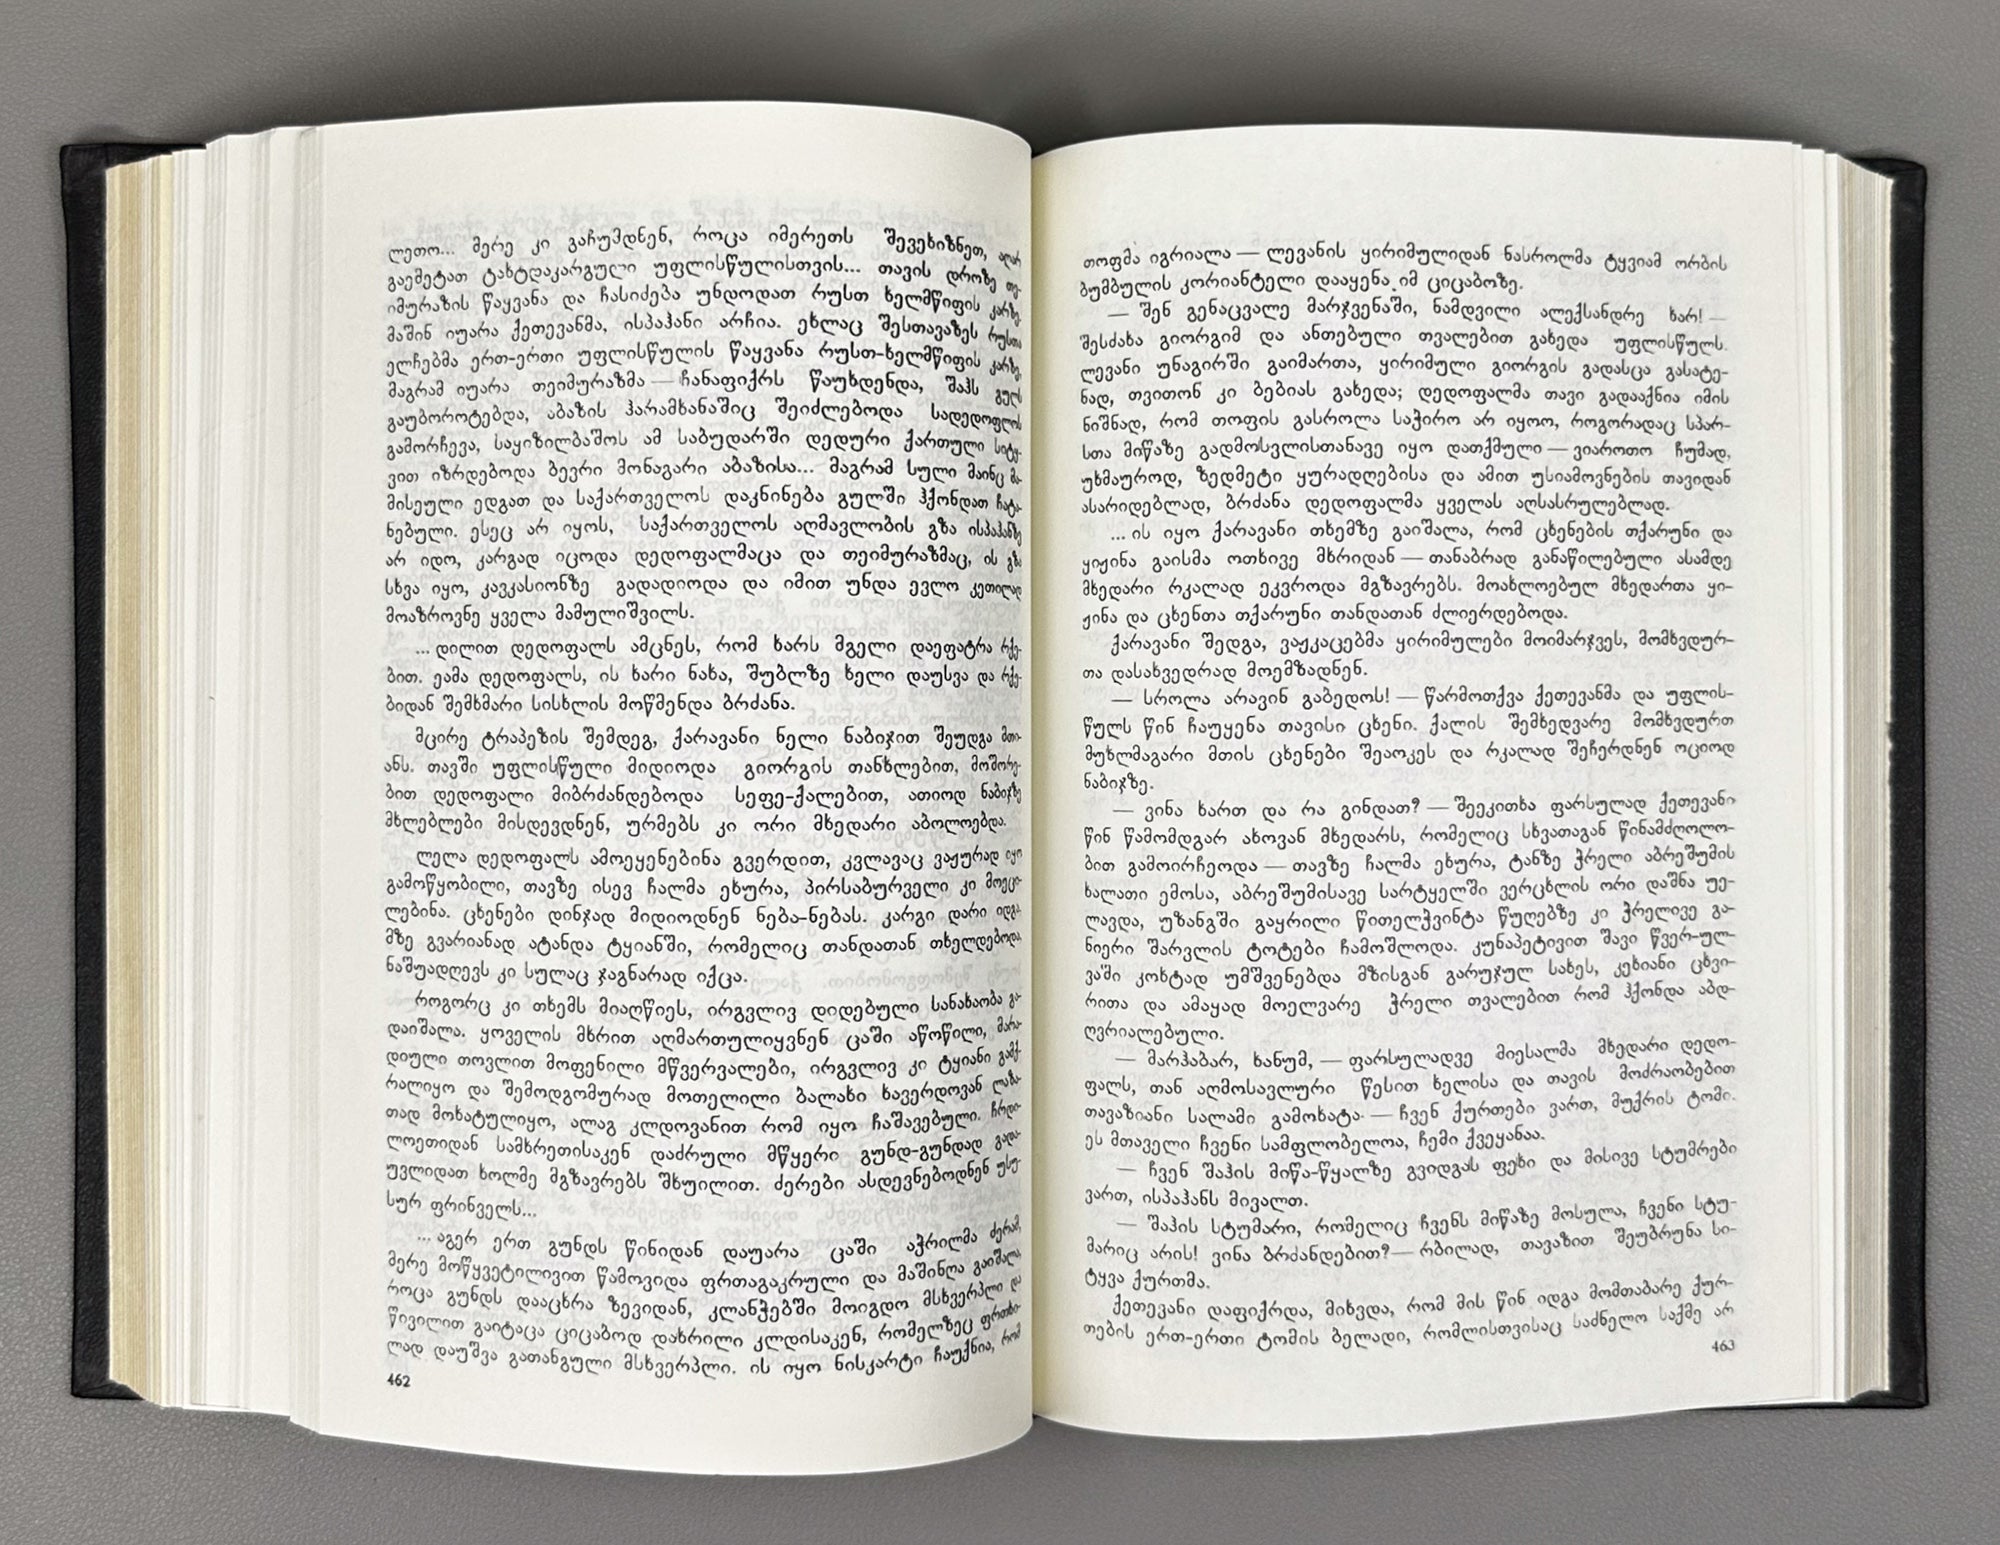 ლეთო... მერე კი გაჩუმდნენ, როცა იმერეთს შევეხიზნეთ, აღარ
გაემეტათ ტახტდაკარგული უფლისწულისთვის... თავის დროზე თე-
იმურაზის წაყვანა და ჩასიძება უნდოდათ რუსთ ხელმწიფის კარზე.
მაშინ იუარა ქეთევანმა, ისპაჰანი არჩია. ეხლაც შესთავაზეს რუსთა
ელჩებმა ერთ-ერთი უფლისწულის წაყვანა რუსთ-ხელმწიფის კარზე,
მაგრამ იუარა თეიმურაზმა — ჩანაფიქრს წაუხდენდა, შაჰს გულს
გაუბოროტებდა, აბაზის ჰარამხანაშიც შეიძლებოდა სადედოფლოს
გამორჩევა, საყიზილბაშოს ამ საბუდარში დედური ქართული სიტყ-
ვით იზრდებოდა ბევრი მონაგარი აბაზისა... მაგრამ სული მაინც მა-
მისეული ედგათ და საქართველოს დაკნინება გულში ჰქონდათ ჩატა-
ნებული. ესეც არ იყოს, საქართველოს აღმავლობის გზა ისპაჰანზე
არ იდო, კარგად იცოდა დედოფალმაცა და თეიმურაზმაც, ის გზა
სხვა იყო, კავკასიონზე გადადიოდა და იმით უნდა ევლო კეთილად
მოაზროვნე ყველა მამულიშვილს.
... დილით დედოფალს ამცნეს, რომ ხარს მგელი დაეფატრა რქე-
ბით. ეამა დედოფალს, ის ხარი ნახა, შუბლზე ხელი დაუსვა და რქე-
ბიდან შემხმარი სისხლის მოწმენდა ბრძანა.
მცირე ტრაპეზის შემდეგ, ქარავანი ნელი ნაბიჯით შეუდგა მთი-
ანს. თავში უფლისწული მიდიოდა გიორგის თანხლებით, მოშორე-
ბით დედოფალი მიბრძანდებოდა სეფე-ქალებით, ათიოდ ნაბიჯზე
მხლებლები მისდევდნენ, ურმებს კი ორი მხედარი აბოლოებდა.
ლელა დედოფალს ამოეყენებინა გვერდით, კვლავაც ვაჟურად იყო
გამოწყობილი, თავზე ისევ ჩალმა ეხურა, პირსაბურველი კი მოეცი-
ლებინა. ცხენები დინჯად მიდიოდნენ ნება-ნებას. კარგი დარი იდგა.
მზე გვარიანად ატანდა ტყიანში, რომელიც თანდათან თხელდებოდა,
ნაშუადღევს კი სულაც ჯაგნარად იქცა.
როგორც კი თხემს მიაღწიეს, ირგვლივ დიდებული სანახაობა გა-
დაიშალა. ყოველის მხრით აღმართულიყვნენ ცაში აწოწილი, მარა-
დიული თოვლით მოფენილი მწვერვალები, ირგვლივ კი ტყიანი გამქ-
რალიყო და შემოდგომურად მოთელილი ბალახი ხავერდოვან ლაზა-
თად მოხატულიყო, ალაგ კლდოვანით რომ იყო ჩაშავებული. ჩრდი-
ლოეთიდან სამხრეთისაკენ დაძრული მწყერი გუნდ-გუნდად გადა-
უვლიდათ ხოლმე მგზავრებს შხუილით. ძერები ასდევნებოდნენ უსუ-
სურ ფრინველს...
... აგერ ერთ გუნდს წინიდან დაუარა ცაში აჭრილმა ძერამ,
მერე მოწყვეტილივით წამოვიდა ფრთაგაკრული და მაშინღა გაიშალა,
როცა გუნდს დააცხრა ზევიდან, კლანჭებში მოიგდო მსხვერპლი და
წივილით გაიტაცა ციცაბოდ დახრილი კლდისაკენ, რომელზეც ფრთხი-
ლად დაუშვა გათანგული მსხვერპლი. ის იყო ნისკარტი ჩაუქნია, რომ
462
თოფმა იგრიალა — ლევანის ყირიმულიდან ნასროლმა ტყვიამ ორბის
ბუმბულის კორიანტელი დააყენა იმ ციცაბოზე.
— შენ გენაცვალე მარჯვენაში, ნამდვილი ალექსანდრე ხარ! —
შესძახა გიორგიმ და ანთებული თვალებით გახედა უფლისწულს.
ლევანი უნაგირში გაიმართა, ყირიმული გიორგის გადასცა გასატე-
ნად, თვითონ კი ბებიას გახედა; დედოფალმა თავი გადააქნია იმის
ნიშნად, რომ თოფის გასროლა საჭირო არ იყოო, როგორადაც სპარ-
სთა მიწაზე გადმოსვლისთანავე იყო დათქმული — ვიაროთო ჩუმად,
უხმაუროდ, ზედმეტი ყურადღებისა და ამით უსიამოვნების თავიდან
ასარიდებლად, ბრძანა დედოფალმა ყველას აღსასრულებლად.
... ის იყო ქარავანი თხემზე გაიშალა, რომ ცხენების თქარუნი და
ყიჟინა გაისმა ოთხივე მხრიდან — თანაბრად განაწილებული ასამდე
მხედარი რკალად ეკვროდა მგზავრებს. მოახლოებულ მხედართა ყი-
ჟინა და ცხენთა თქარუნი თანდათან ძლიერდებოდა.
ქარავანი შედგა, ვაჟკაცებმა ყირიმულები მოიმარჯვეს, მომხვდურ-
თა დასახვედრად მოემზადნენ.
— სროლა არავინ გაბედოს! — წარმოთქვა ქეთევანმა და უფლის-
წულს წინ ჩაუყენა თავისი ცხენი. ქალის შემხედვარე მომხვდურთ
მუხლმაგარი მთის ცხენები შეაოკეს და რკალად შეჩერდნენ ოციოდ
ნაბიჯზე.
— ვინა ხართ და რა გინდათ? — შეეკითხა ფარსულად ქეთევანი
წინ წამომდგარ ახოვან მხედარს, რომელიც სხვათაგან წინამძღოლო-
ბით გამოირჩეოდა — თავზე ჩალმა ეხურა, ტანზე ჭრელი აბრეშუმის
ხალათი ემოსა, აბრეშუმისავე სარტყელში ვერცხლის ორი დაშნა უე-
ლავდა, უზანგში გაყრილი წითელჭვინტა წუღებზე კი ჭრელივე გა-
ნიერი შარვლის ტოტები ჩამოშლოდა. კუნაპეტივით შავი წვერ-ულ-
ვაში კოხტად უმშვენებდა მზისგან გარუჯულ სახეს, კეხიანი ცხვი-
რითა და ამაყად მოელვარე ჭრელი თვალებით რომ ჰქონდა აბდ-
ღვრიალებული.
— მარჰაბარ, ხანუმ, — ფარსულადვე მიესალმა მხედარი დედო-
ფალს, თან აღმოსავლური წესით ხელისა და თავის მოძრაობებით
თავაზიანი სალამი გამოხატა. — ჩვენ ქურთები ვართ, მუქრის ტომი.
ეს მთაველი ჩვენი სამფლობელოა, ჩემი ქვეყანაა.
— ჩვენ შაჰის მიწა-წყალზე გვიდგას ფეხი და მისივე სტუმრები
ვართ, ისპაჰანს მივალთ.
— შაჰის სტუმარი, რომელიც ჩვენს მიწაზე მოსულა, ჩვენი სტუ-
მარიც არის! ვინა ბრძანდებით? — რბილად, თავაზით შეუბრუნა სი-
ტყვა ქურთმა.
ქეთევანი დაფიქრდა, მიხვდა, რომ მის წინ იდგა მომთაბარე ქურ-
თების ერთ-ერთი ტომის ბელადი, რომლისთვისაც საძნელო საქმე არ
463